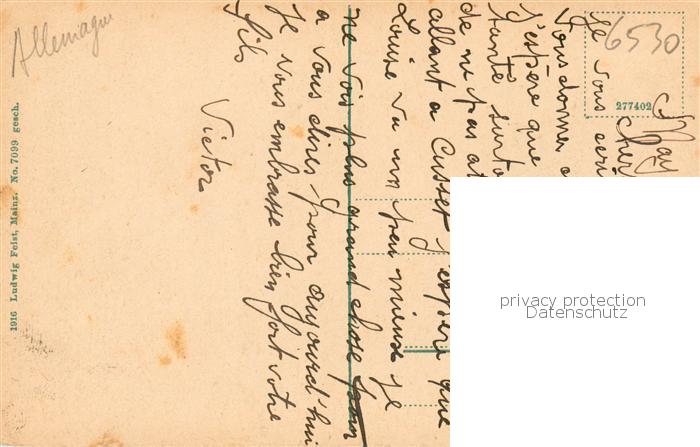 Allemagne
6530
277402
May
Cher
Je vous écri
Vous donner
J'espère que
Santé surto
de ne pas at
allant a Cusset J'espère que
Louise va un peu mieux je
ne vois plus grand chose pour
a vous dires pour aujourd'hui
Je vous embrasse bien fort votre
fils
Victor
1916 Ludwig Feist, Mainz. No. 7099 gesch.
privacy protection
Datenschutz